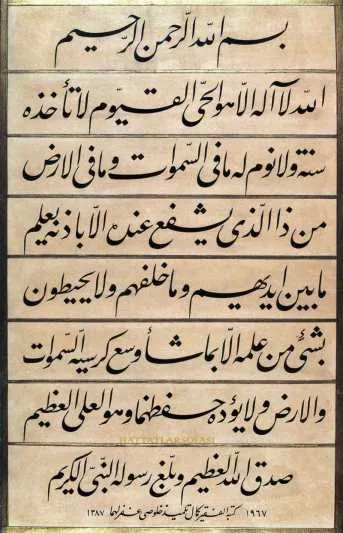 بسم الله الرحمن الرحيم
الله لا آله الا هو الحى القيوم لا تأخذه
سنة ولا نوم له ما فى السموات وما فى الارض
من ذا الذى يشفع عنده الا باذنه يعلم
ما بين ايديهم وما خلفهم ولا يحيطون
بشئ من علمه الا بما شا وسع كرسيه السموات
والارض ولا يؤده حفظهما وهو العلى العظيم
HATTATLAR SOFASI
صدق الله العظيم وبلغ رسوله النبى الكريم
١٩٦٧ كتبه الفقير كمال تلميذ خلوصى غفر لهما ١٣٨٧